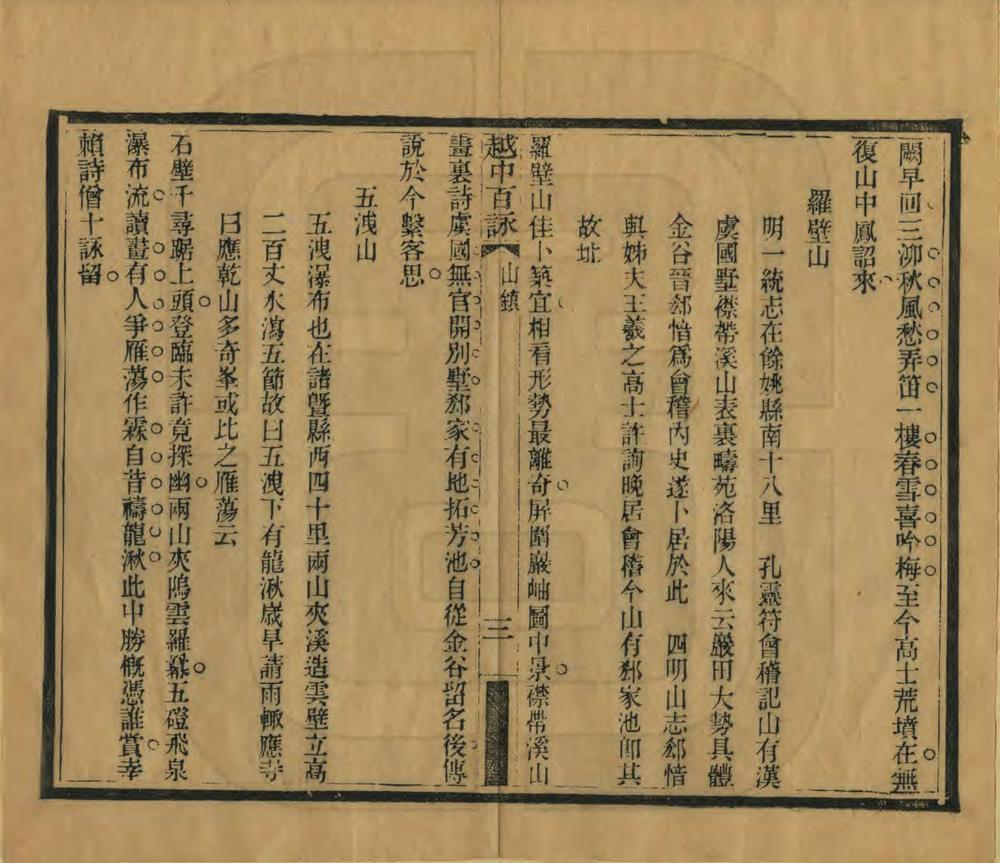 闕早回三泖秋風愁弄笛一樓春雪喜吟梅至今高士荒墳在無
復山中鳳詔來
羅壁山
明一統志在餘姚縣南十八里　孔靈符會稽記山有漢
虞國墅襟帶溪山表裏疇苑洛陽人來云巖田大勢具體
金谷晉郄愔爲會稽內史遂卜居於此　四明山志郄愔
與姊夫王羲之高士許詢晚居會稽今山有郄家池卽其
故址
羅壁山佳卜築宜相看形勢最離奇屏圍巖岫圖中景襟帶溪山
越中百詠　山鎮　三
畫裏詩虞國無官開別墅郄家有地拓芳池自從金谷留名後傳
說於今繫客思
五洩山
五洩瀑布也在諸暨縣西四十里兩山夾溪造雲壁立高
二百丈水瀉五節故曰五洩下有龍湫歲旱請雨輒應寺
曰應乾山多奇峯或比之雁蕩云
石壁千尋踞上頭登臨未許竟探幽兩山夾隖雲羅幕五磴飛泉
瀑布流讀畫有人爭雁蕩作霖自昔禱龍湫此中勝槪憑誰賞幸
賴詩僧十詠留